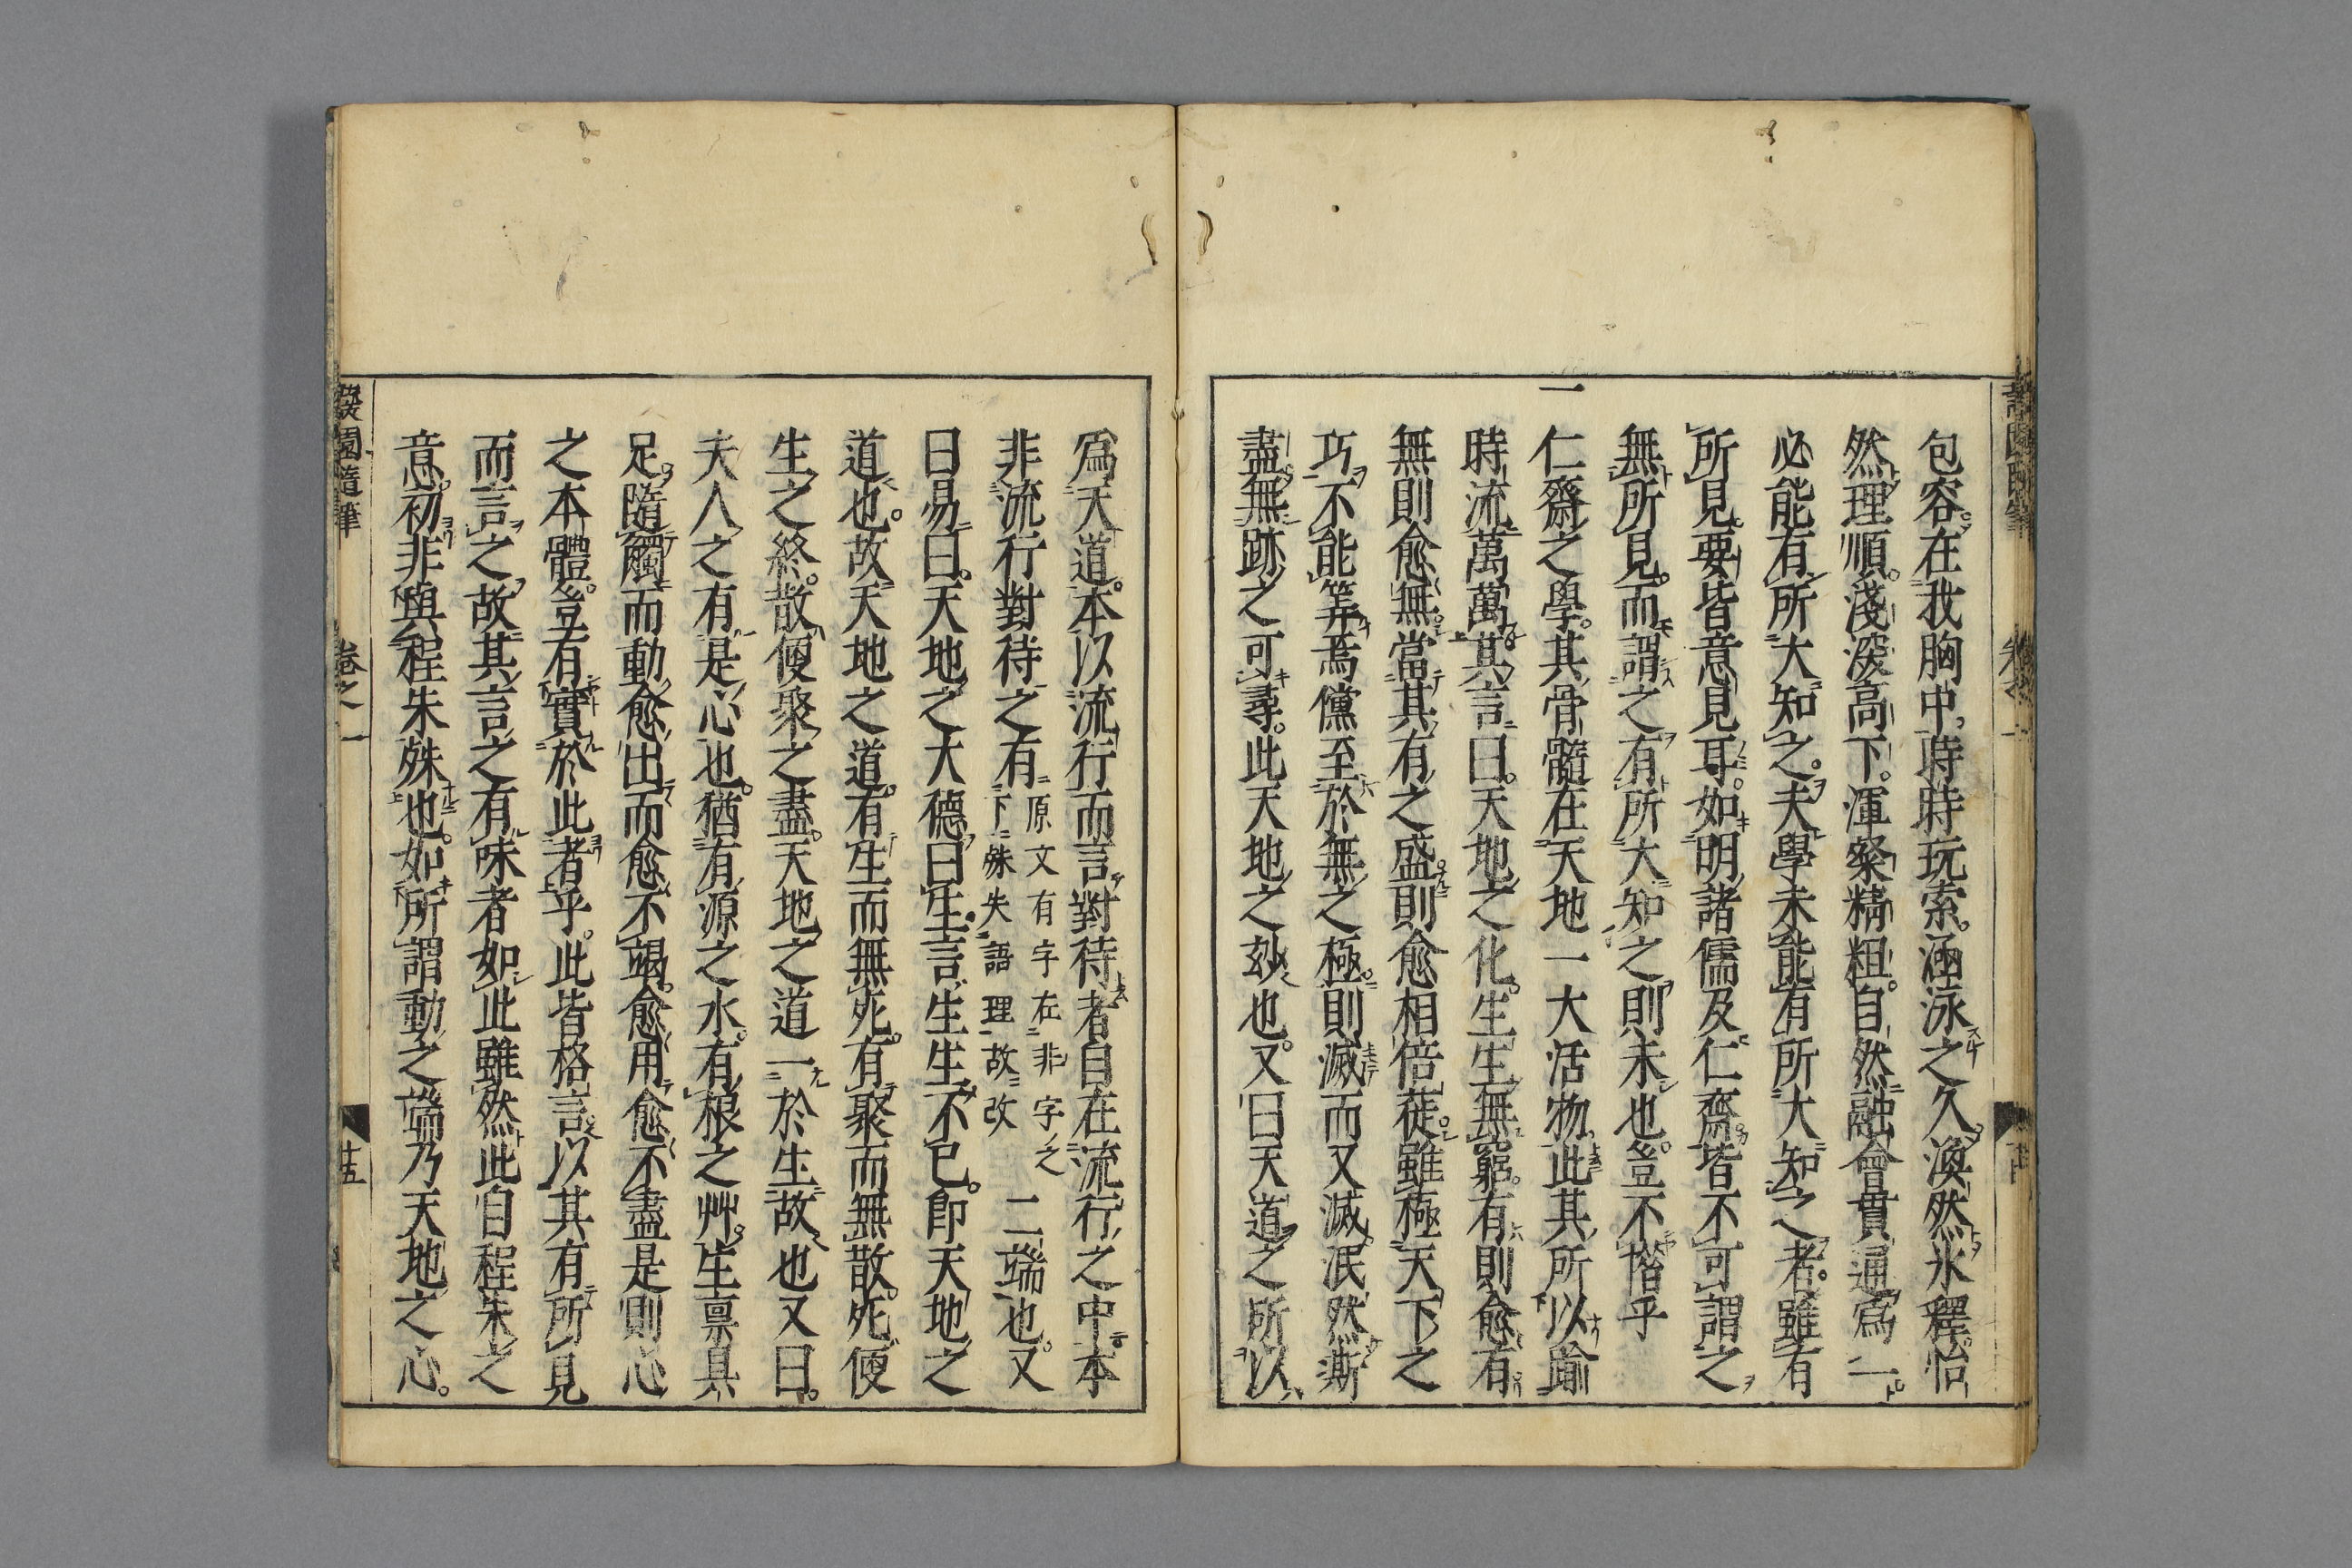 包容。在我胸中。時時玩索。涵泳之久。渙然氷釋。怡
然理順。淺深高下。渾粲精粗。自然融會貫通爲一
必能有所大知之。夫學未能有所大知之者。雖有
所見。要皆意見耳。如明諸儒及仁齋。皆不可謂之
無所見。而謂之有所大知之則未也。豈不惜乎
一仁齋之學。其骨髓在天地一大活物。此其所以踰
時流萬萬。其言曰。天地之化。生生無窮。有則愈有
無則愈無。當其有之盛。則愈相倍蓰。雖極天下之
巧。不能筭焉。儻至於無之極。則滅而又滅。泯然澌
盡。無跡之可尋。此天地之玅也。又曰天道之所以
爲天道。本以流行而言。對待者自在流行之中。本
非流行對待之有
原文有字在非字之
下殊失語理故改
二端也。又
曰。易曰。天地之大德曰生。言生生不已。即天地之
道也。故天地之道。有生而無死。有聚而無散。死便
生之終。散便聚之盡。天地之道一於生故也又曰。
夫人之有是心也。猶有源之水。有根之艸。生稟具
足。隨觸而動愈出而愈不竭。愈用愈不盡是則心
之本體。豈有實於此者乎。此皆格言以其有所見
而言之故其言之有味者如此雖然此自程朱之
意。初非與程朱殊也。如所謂動之端乃天地之心。
蘐園隨筆
卷之一
十五